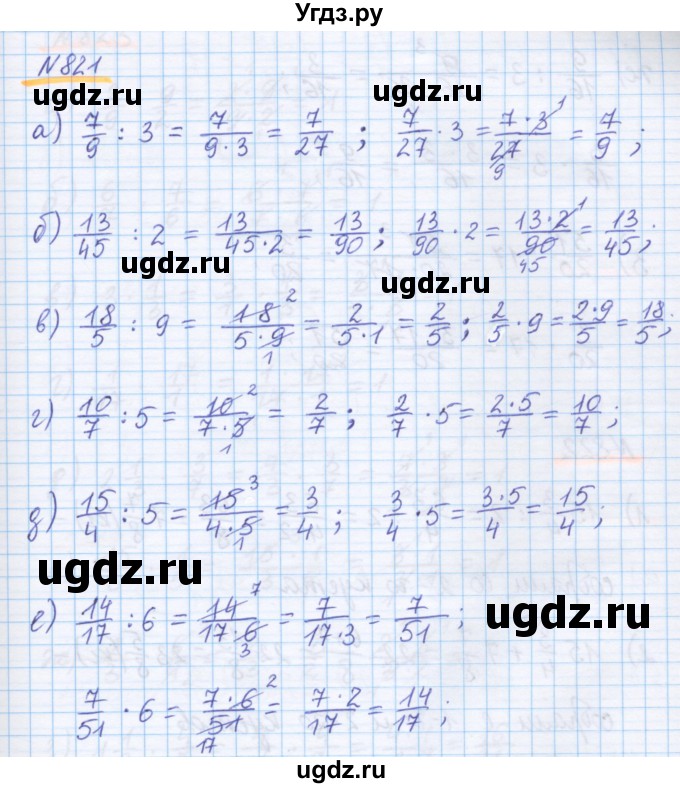 Угдз.ру
N821
ugdz.ru ugdz.ru
а) 7/9 : 3 = 7/(9·3) = 7/27 ; 7/27 · 3 = (7·3)/27 = 7/9 ; 1 9
б) 13/45 : 2 = 13/(45·2) = 13/90 ; 13/90 · 2 = (13·2)/90 = 13/45 ; 1 45
ugdz.ru ugdz.ru
в) 18/5 : 9 = 18/(5·9) = 2/(5·1) = 2/5 ; 2/5 · 9 = (2·9)/5 = 18/5 ; 2 1
г) 10/7 : 5 = 10/(7·5) = 2/7 ; 2/7 · 5 = (2·5)/7 = 10/7 ; 2 1
д) 15/4 : 5 = 15/(4·5) = 3/4 ; 3/4 · 5 = (3·5)/4 = 15/4 ; 3 1
ugdz.ru
е) 14/17 : 6 = 14/(17·6) = 7/(17·3) = 7/51 ; 7 3
ugdz.ru
7/51 · 6 = (7·6)/51 = (7·2)/17 = 14/17 ; 2 17
ugdz.ru